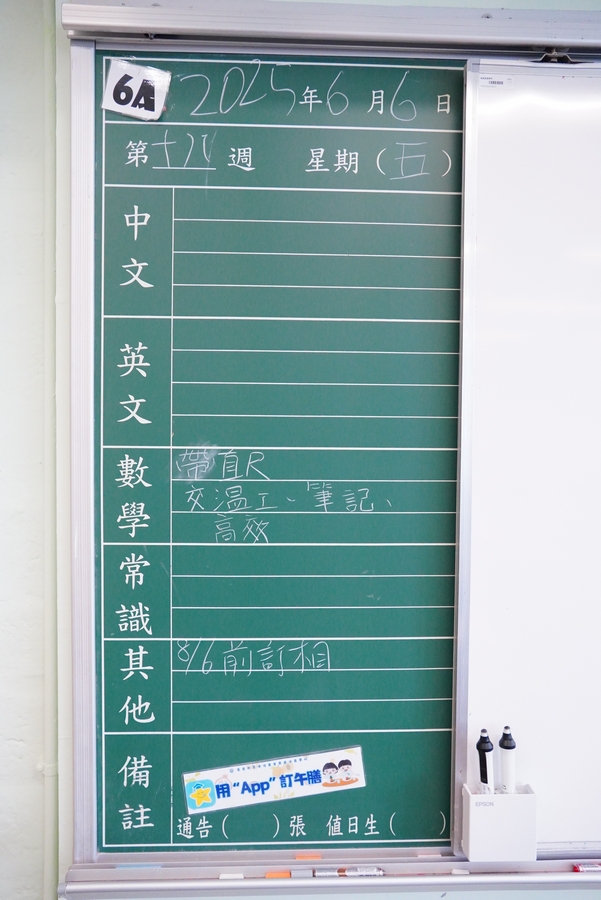 6A 2025年6月6日
第十八週 星期（五）
中文
英文
數學 帶直尺
交溫工、筆記、
高效
常識
其他 8/6前訂相
備註
用“App”訂午膳
通告（ ）張 值日生（ ）
EPSON